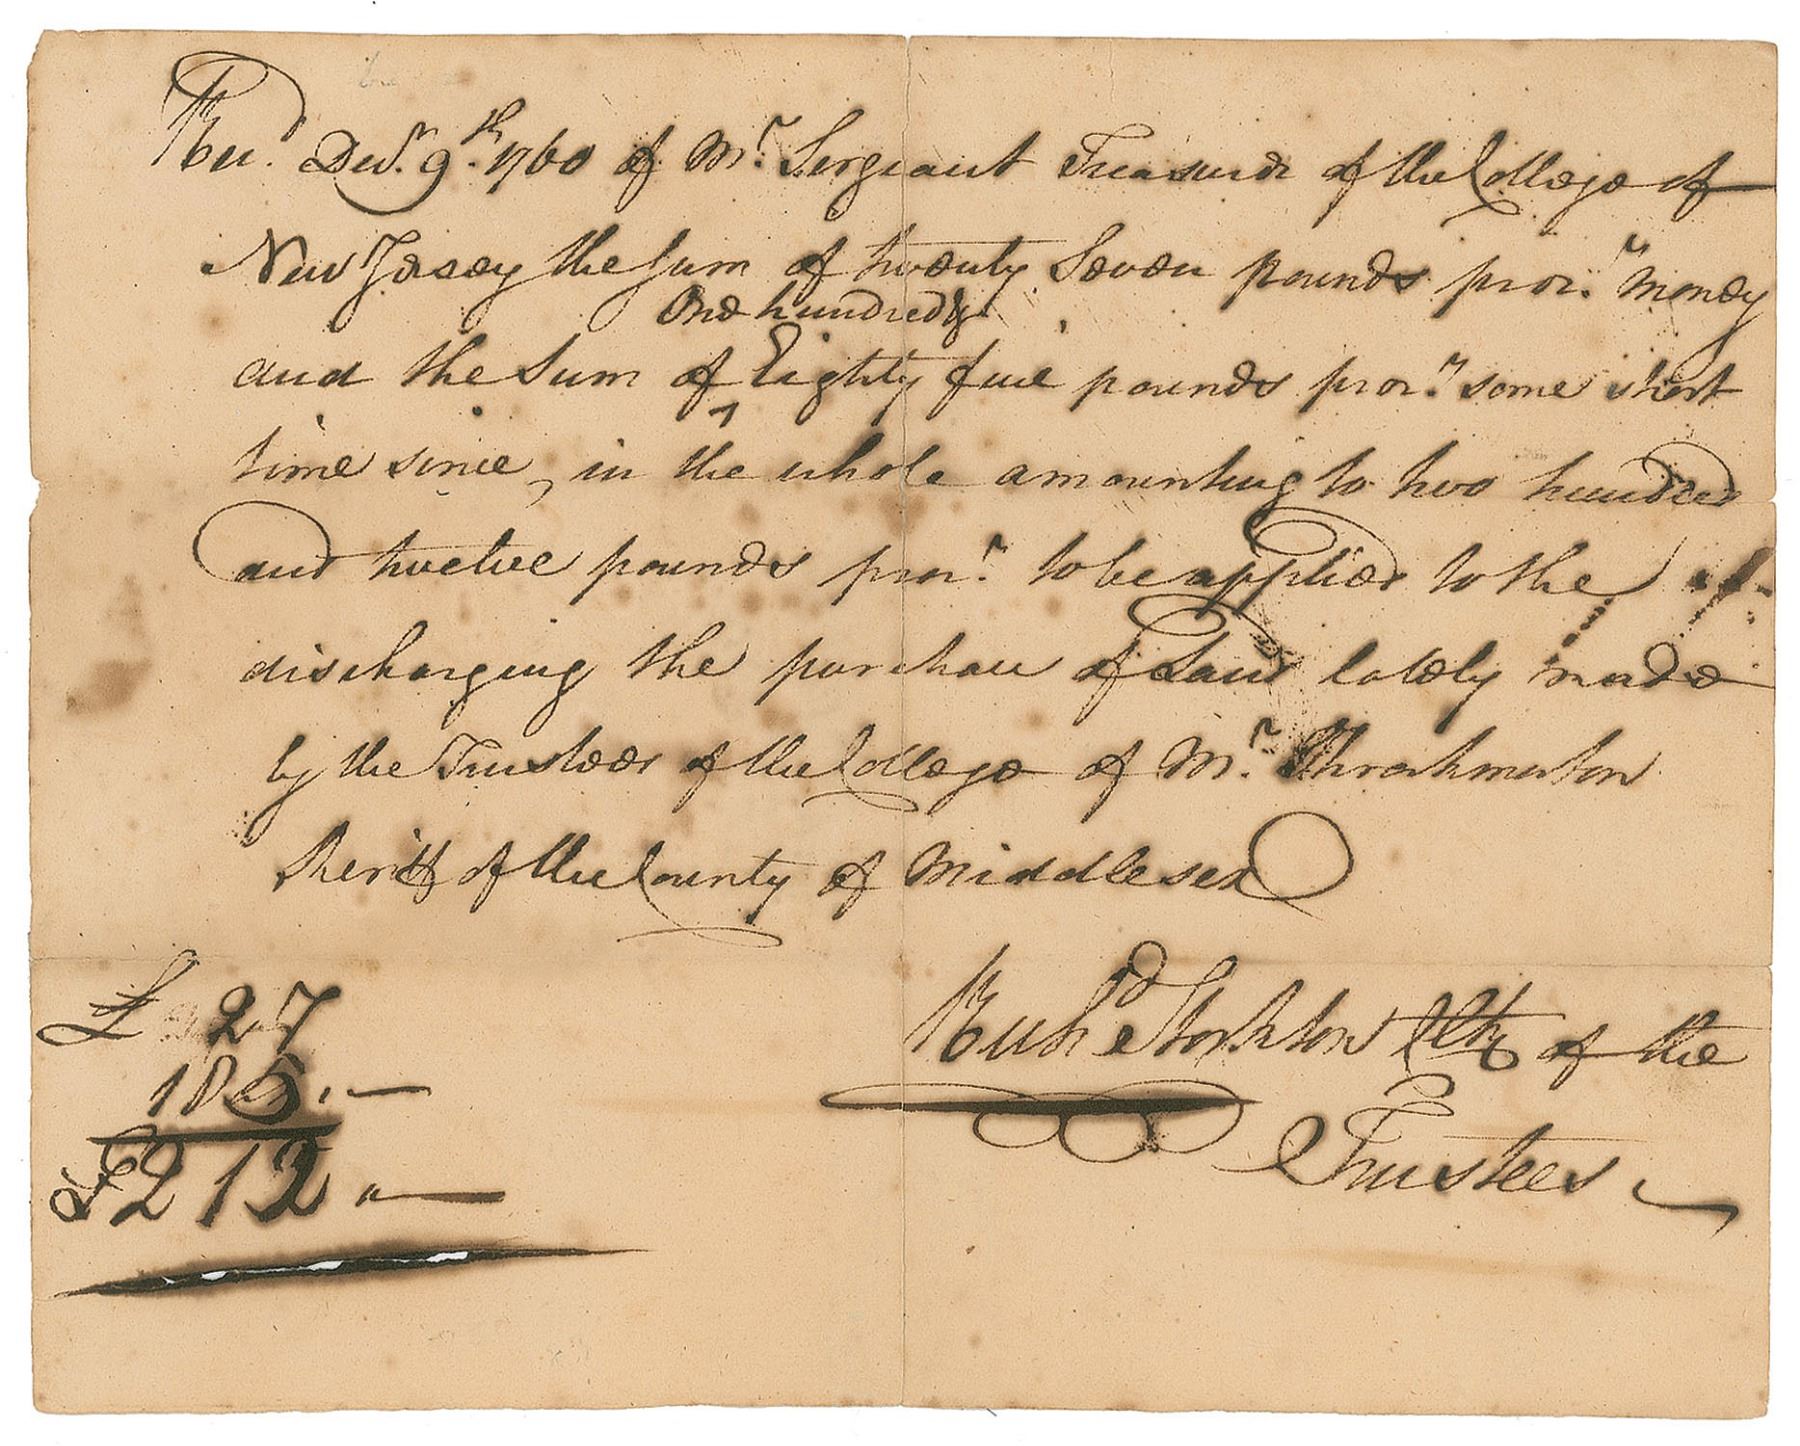 Rec.d Decr. 9th. 1760 of Mr. Sergeant Treasurer of the College of
New Jersey the Sum of twenty Seven pounds procn. money
One hundred &
and the Sum of Eighty five pounds procn. some short
time since, in the whole amounting to two hundred
and twelve pounds procn. to be applied to the
discharging the purchase of Land lately made
by the Trustees of the College of Mr. Throckmorton
Sheriff of the County of Middlesex
£ 27
185.—
£212 "—
Richd Stockton Clk of the
Trustees